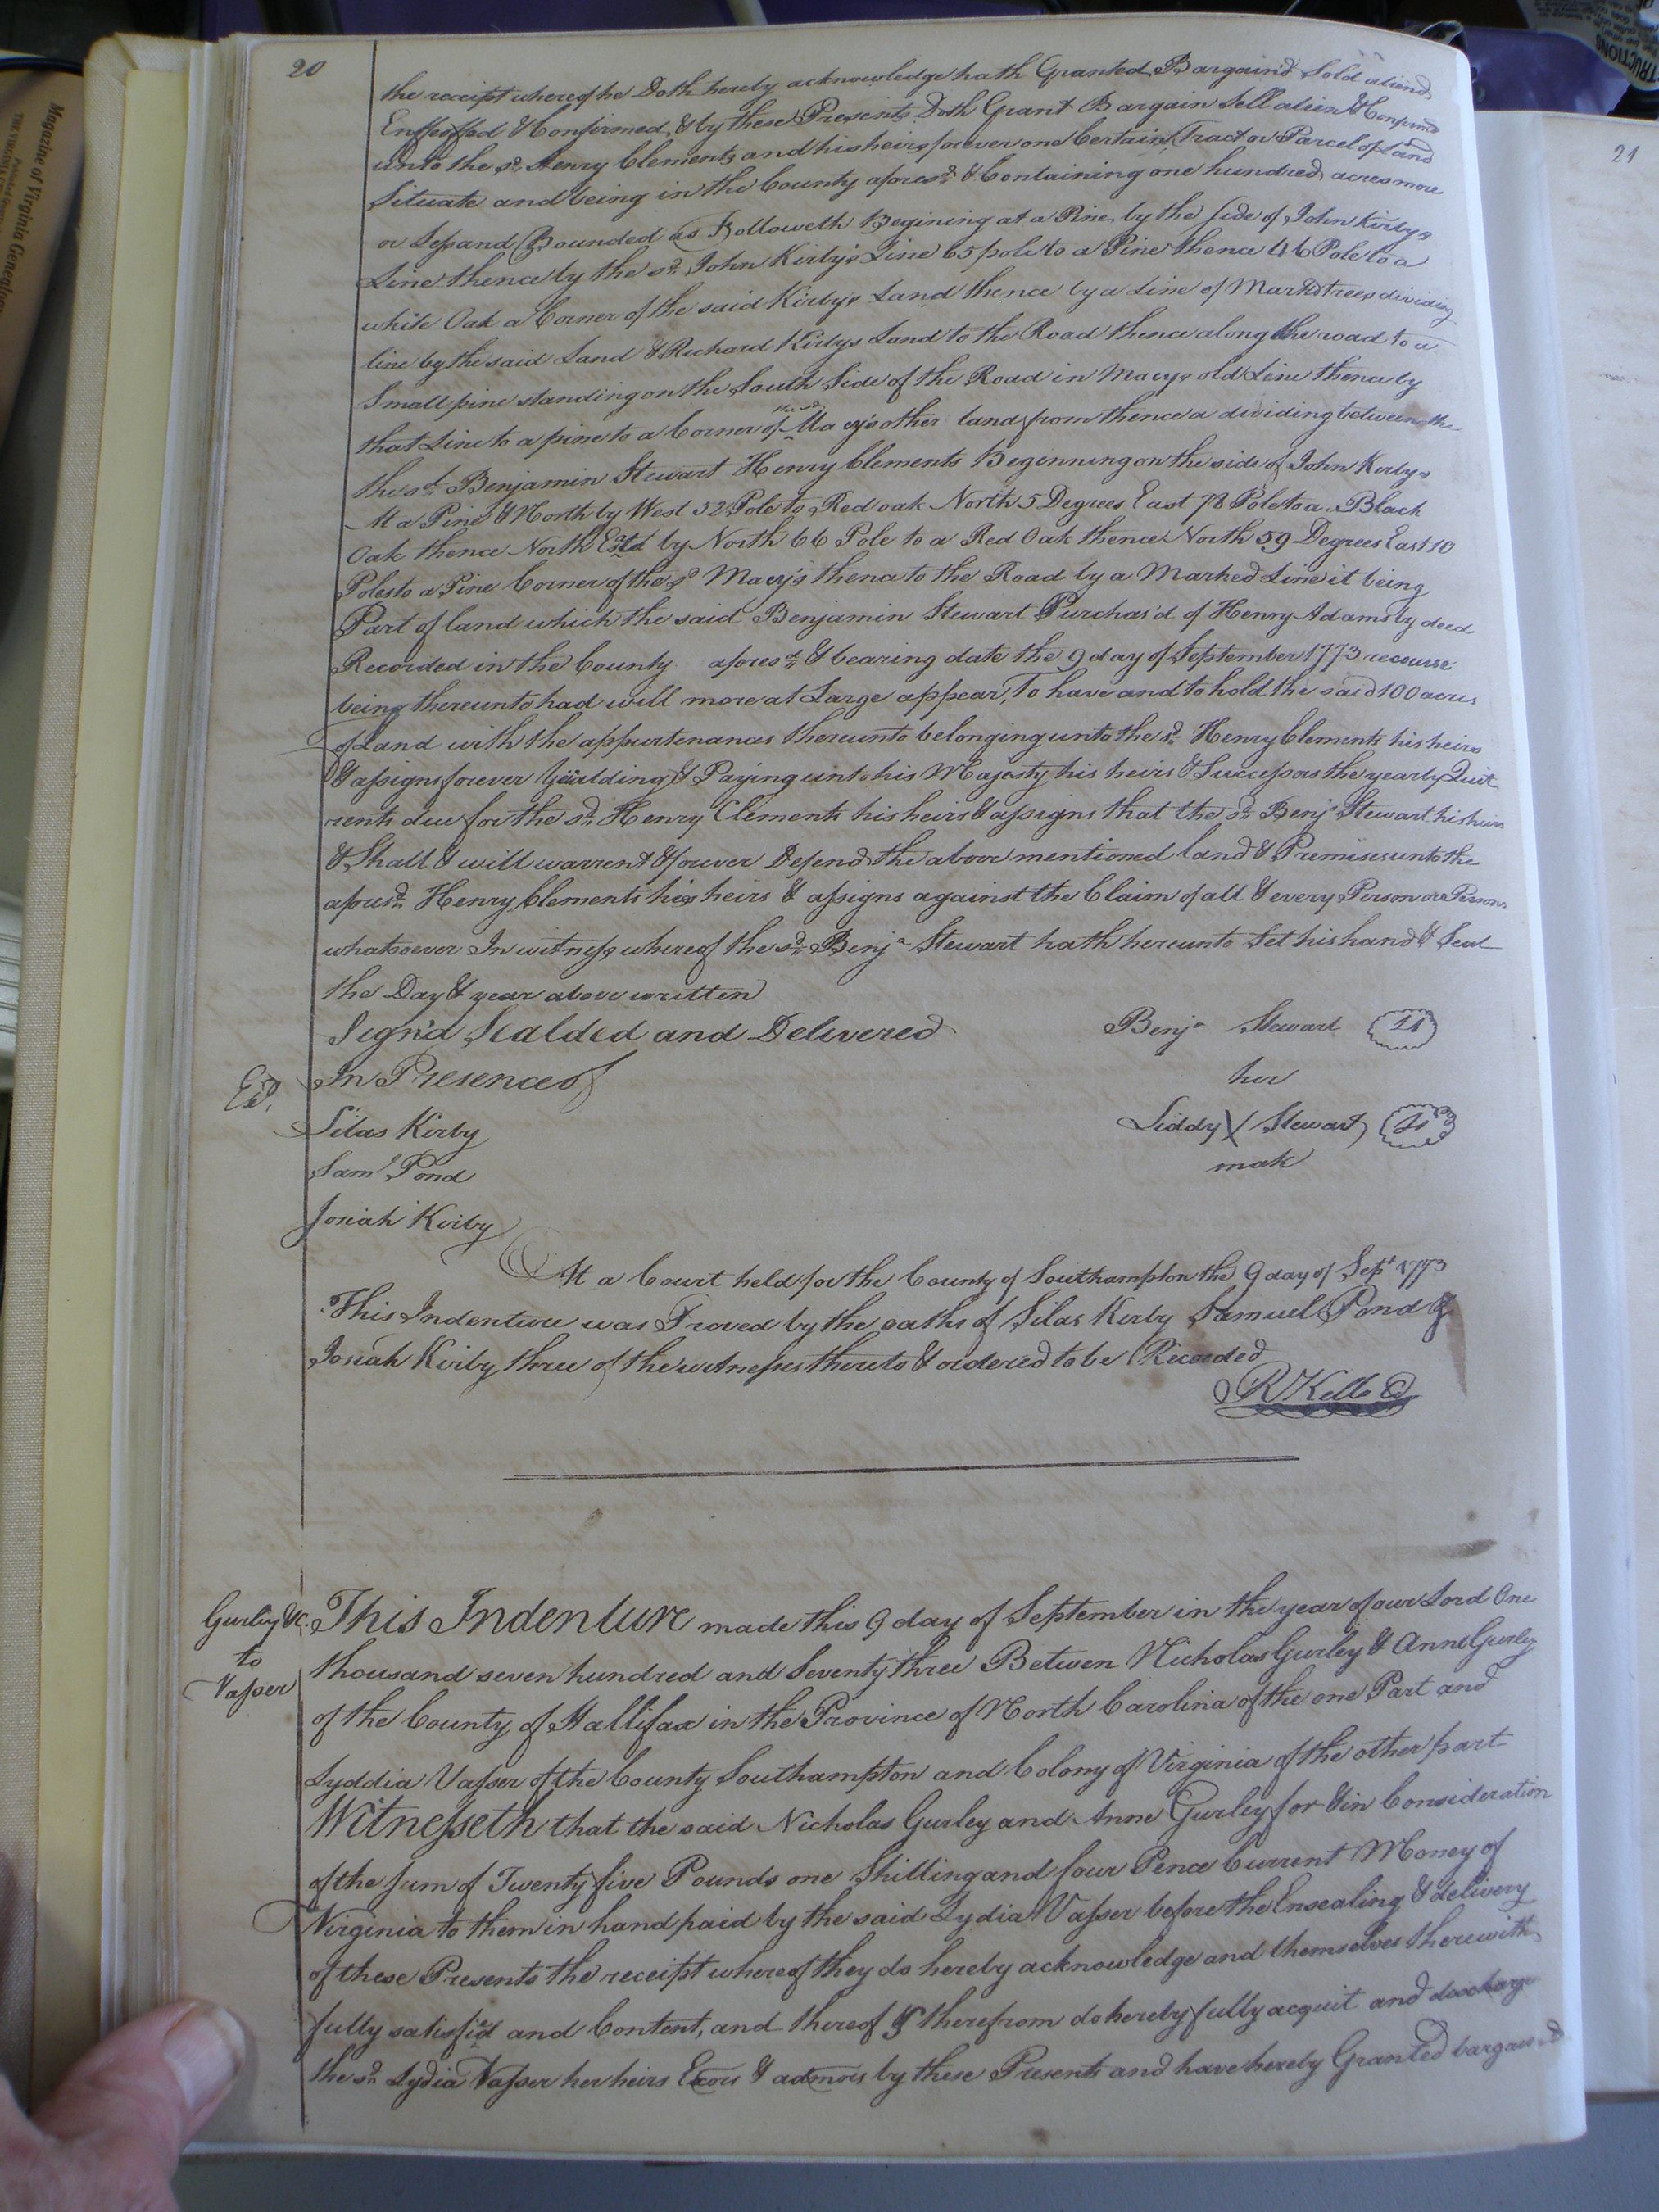 20
the receipt whereof he Doth hereby acknowledge hath Granted Bargain'd Sold aliend
Enffeoffed & Confirmed, & by these Presents Doth Grant Bargain Sell alien & Confirmd
unto the sd. Henry Clements and his heirs forever one Certain Tract or Parcel of Land
Situate and being in the County aforesd. & Containing one hundred acres more
or Less and Bounded as Followeth Begining at a Pine by the side of John Kirbys
Line thence by the sd. John Kirby's Line 65 pole to a Pine thence 46 Pole to a
white Oak a Corner of the said Kirby's Land thence by a Line of Markd trees dividing
line by the said Land & Richard Kirbys Land to the Road thence along the road to a
Small pine standing on the South Side of the Road in Macys old Line thence by
that Line to a pine to a Corner of the sd. Macy's other land from thence a dividing between the
the sd. Benjamin Stewart Henry Clements Beginning on the side of John Kirbys
At a Pine & North by West 52 Pole to Red oak North 5 Degrees East 78 Pole to a Black
Oak thence North East by North 66 Pole to a Red Oak thence North 59 Degrees East 10
Poles to a Pine Corner of the sd Macy's thence to the Road by a Marked Line it being
Part of land which the said Benjamin Stewart Purchas'd of Henry Adams by deed
Recorded in the County aforesd. & bearing date the 9 day of September 1773 recourse
being thereunto had will more at Large appear, To have and to hold the said 100 acres
of Land with the appurtenances thereunto belonging unto the sd. Henry Clements his heirs
& assigns forever Yealding & Paying unto his Majesty his heirs & Successors the yearly Quit
rents due for the sd. Henry Clements his heirs & assigns that the sd. Benja Stewart his heirs
& Shall & will warrent & forever Defend the above mentioned land & Premises unto the
aforesd. Henry Clements his heirs & assigns against the Claim of all & every Person or Persons
whatsoever In witness whereof the sd. Benja Stewart hath hereunto Set his hand & Seal
the Day & year above written
Sign'd Sealded and Delivered Benja Stewart LS
In Presence of her
Exd.
Silas Kirby Liddy X Stewart LS
Saml Pond mak
Josiah Kirby
At a Court held for the County of Southampton the 9 day of Sept 1773
This Indenture was Proved by the oaths of Silas Kirby Samuel Pond &
Josiah Kirby three of the witnesses thereto & ordered to be Recorded
R Kello
Gurley &c. This Indenture made this 9 day of September in the year of our Lord One
to
Vasser
thousand seven hundred and Seventy three Betwen Nicholas Gurley & Anne Gurley
of the County of Hallifax in the Province of North Carolina of the one Part and
Lyddia Vasser of the County Southampton and Colony of Virginia of the other part
Witnesseth that the said Nicholas Gurley and Anne Gurley for & in Consideration
of the Sum of Twenty five Pounds one Shilling and four Pence Current Money of
Virginia to them in hand paid by the said Lydia Vasser before the Ensealing & delivery
of these Presents the receipt whereof they do hereby acknowledge and themselves therewith
fully satisfied and Content, and thereof & therefrom do hereby fully acquit and discharge
the sd. Lydia Vasser her heirs Exors & admors by these Presents and have hereby Granted bargained
21
Magazine of Virginia Genealogy